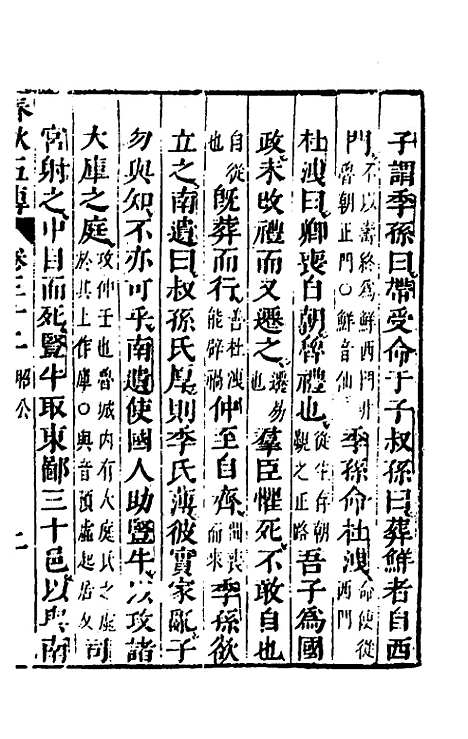 子謂季孫曰帶受命于子叔孫曰葬鮮者自西
門不以壽終爲鮮西門非魯朝正門○鮮音仙季孫命杜洩命使從西門
杜洩曰卿喪自朝魯禮也從生存朝覲之正路吾子爲國
政未改禮而又遷之遷易也羣臣懼死不敢自也
自從也既葬而行善杜洩能辟禍仲至自齊聞喪而來季孫欲
立之南遺曰叔孫氏厚則季氏薄彼實家亂子
勿與知不亦可乎南遺使國人助豎牛以攻諸
大庫之庭攻仲壬也魯城內有大庭氏之虛於其上作庫○與音預虛起居反司
宮射之中目而死豎牛取東鄙三十邑以與南
春秋五傳 卷三十二 昭公